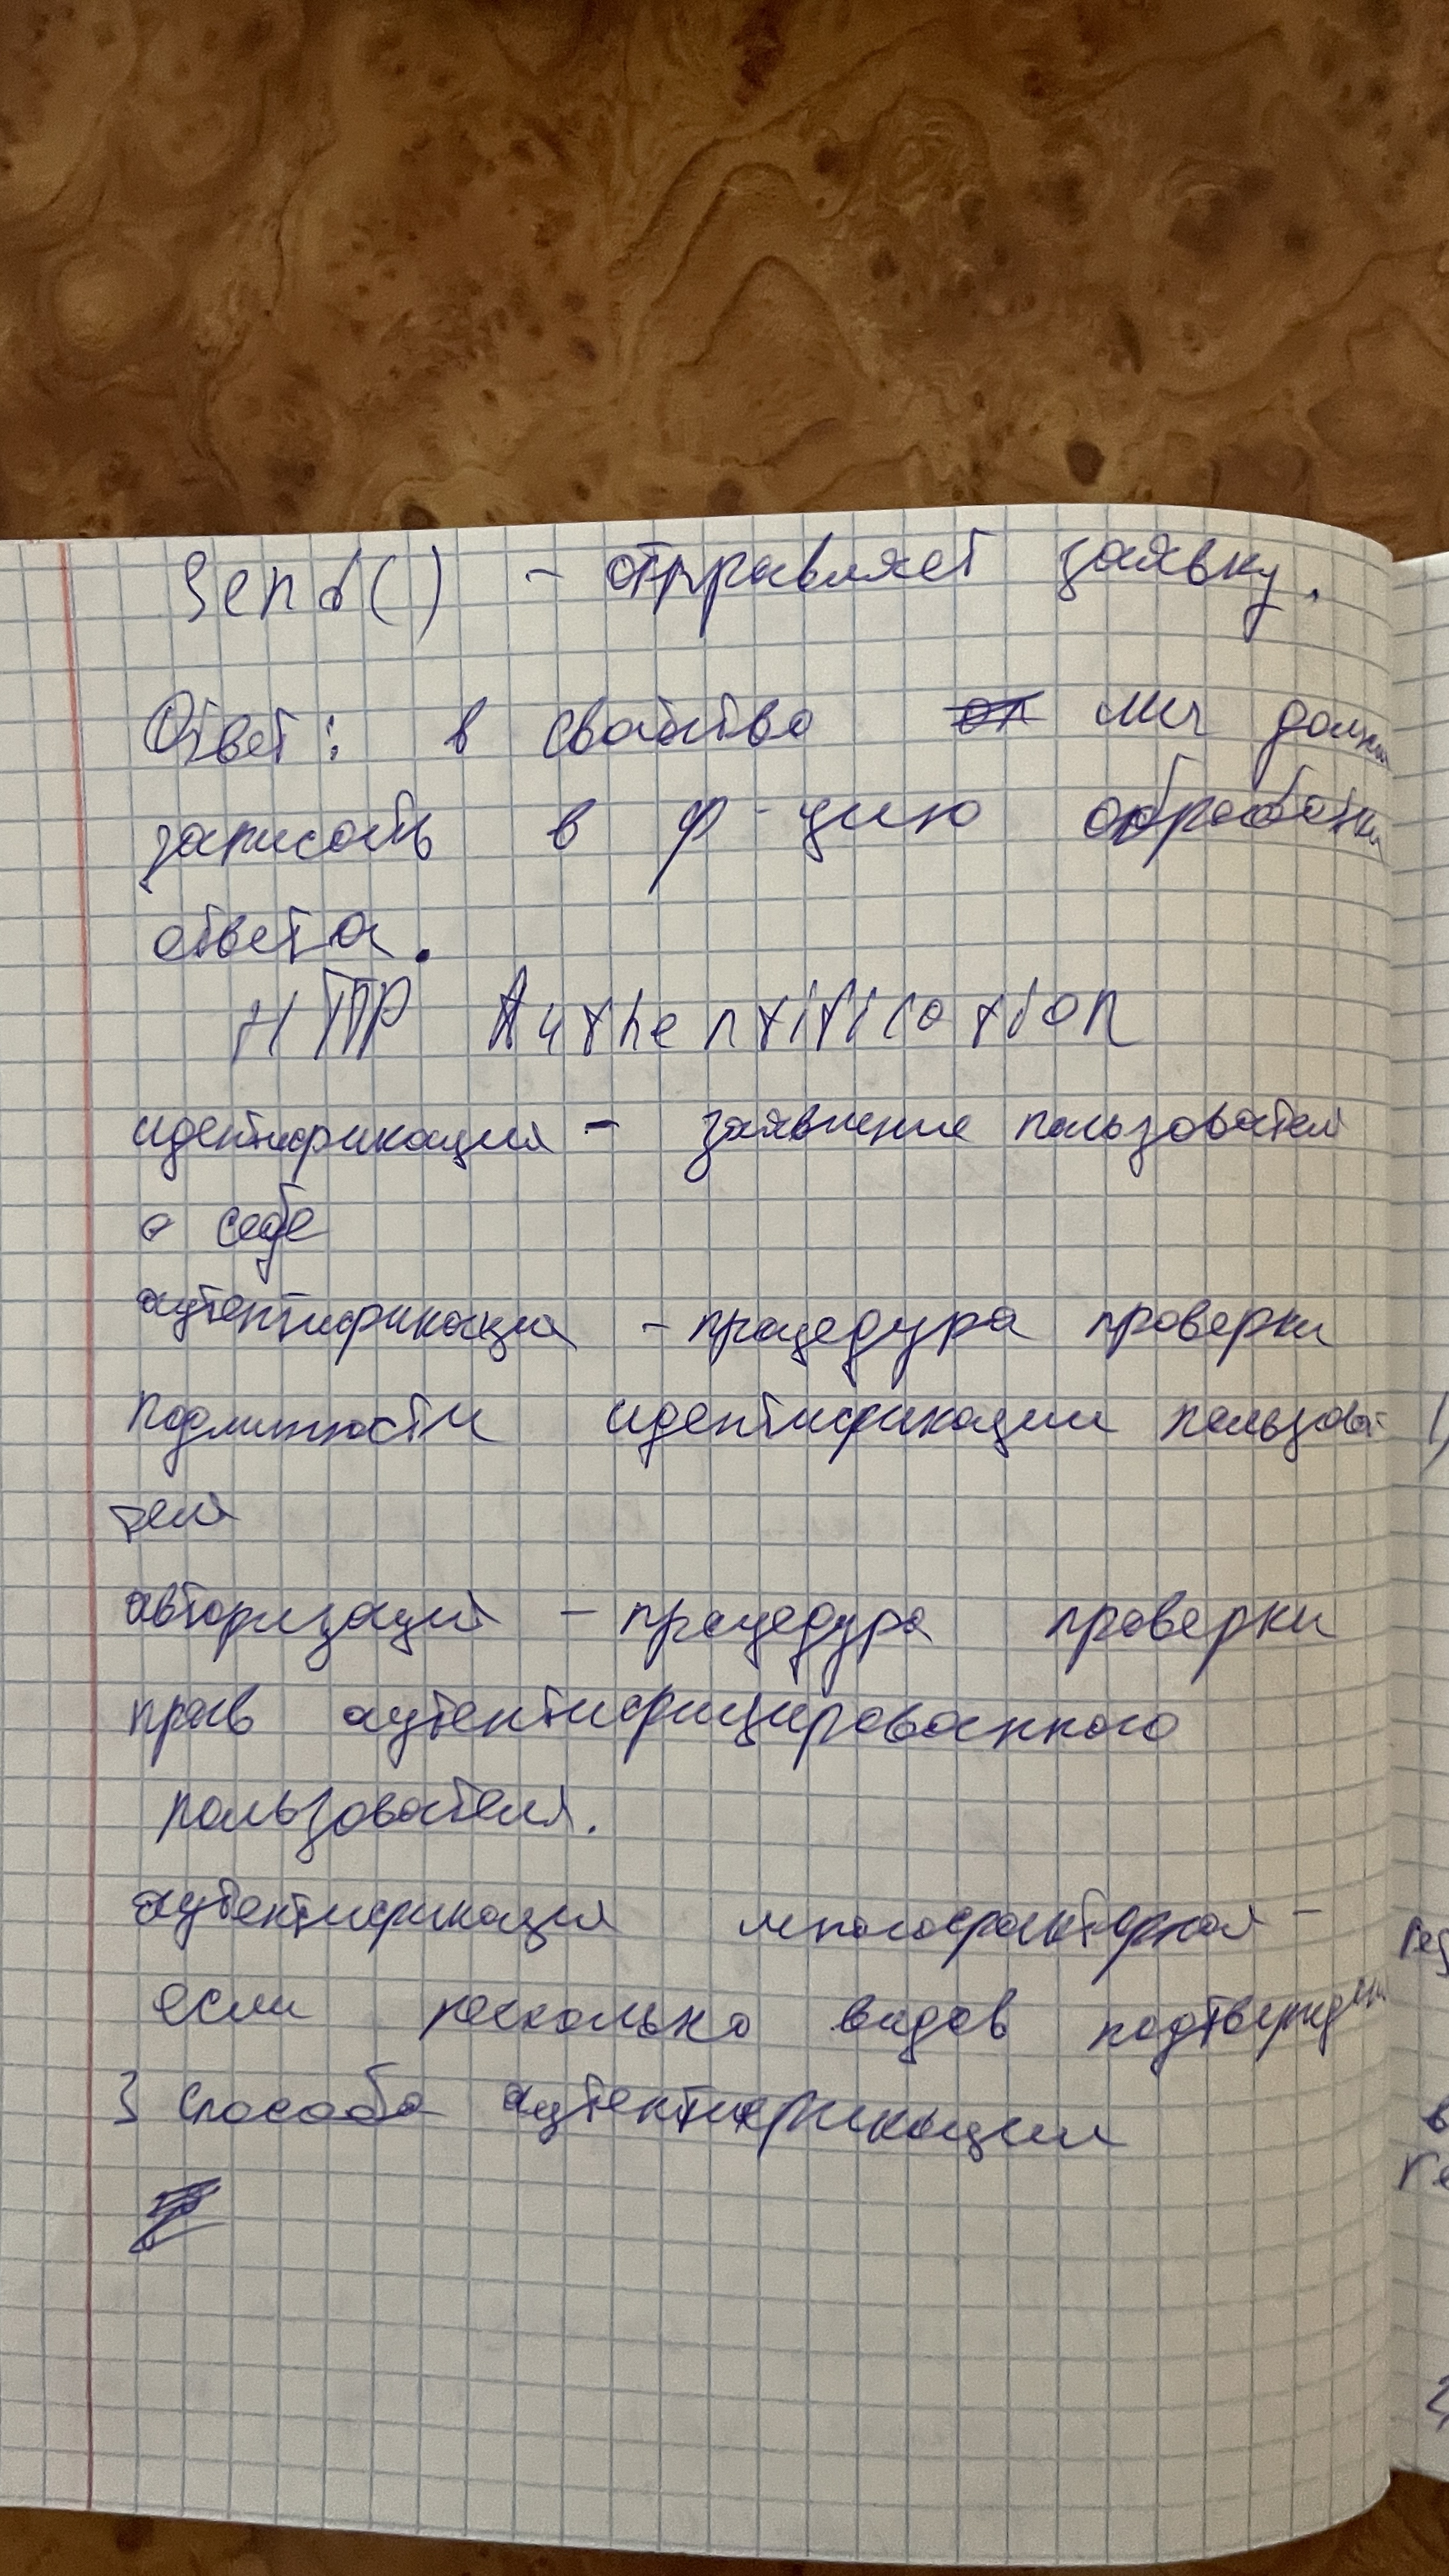 Send() - отправляет заявку.
Ответ: в свойство мы должны
записать в ф-цию обработки
ответа.
HTTP Authentification
идентификация - заявление пользователя
о себе
аутентификация - процедура проверки
подлинности идентификации пользова
теля
авторизация - процедура проверки
прав аутентифицированного
пользователя.
аутентификация многофакторная -
если несколько видов подтвержден
3 способа аутентификации